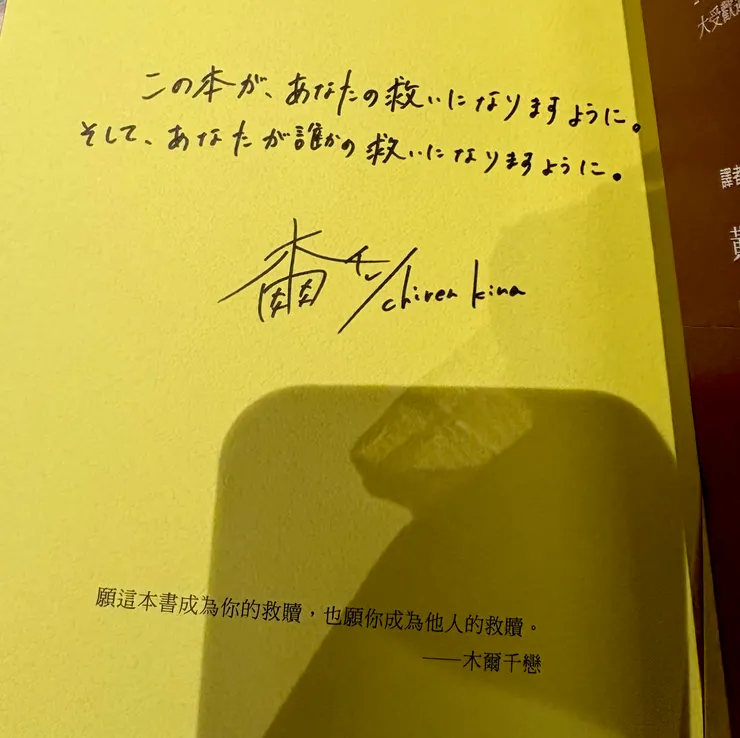 この本が、あなたの救いになりますように。
そして、あなたが誰かの救いになりますように。
chiren kina
願這本書成為你的救贖，也願你成為他人的救贖。
——木爾千戀
大受歡
譯者